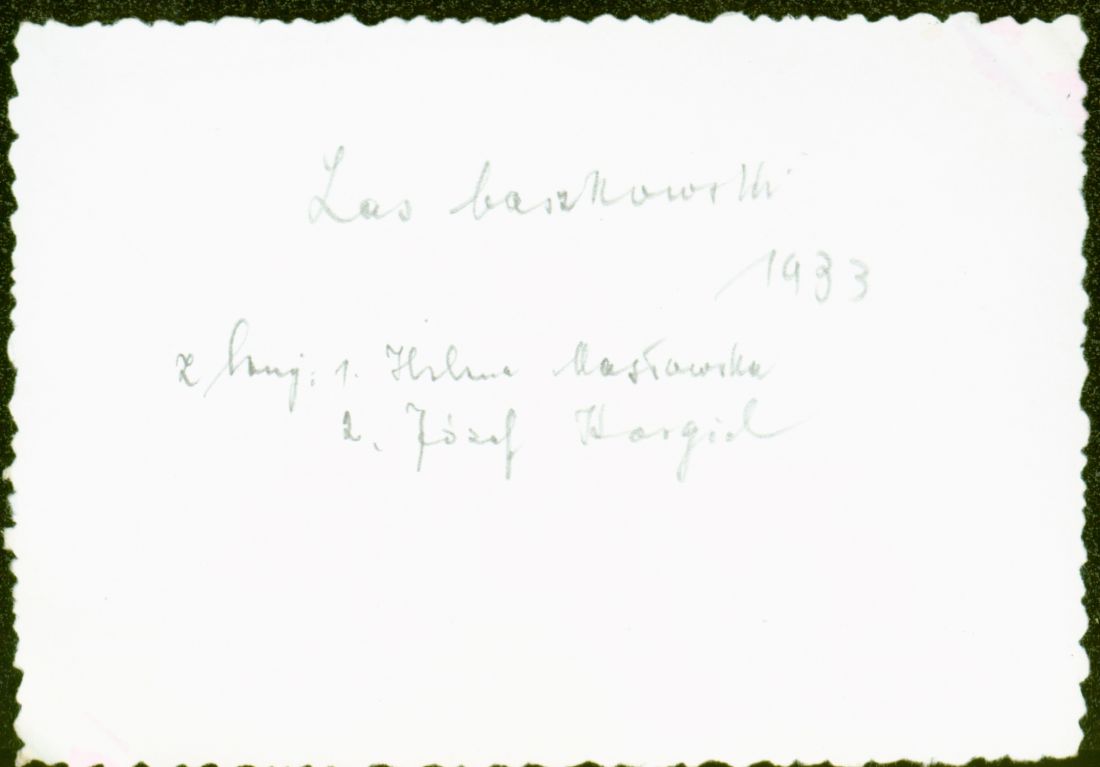 Las baszkowski
1933
z lewej: 1. Helena Masłowska
2. Józef Kargiel